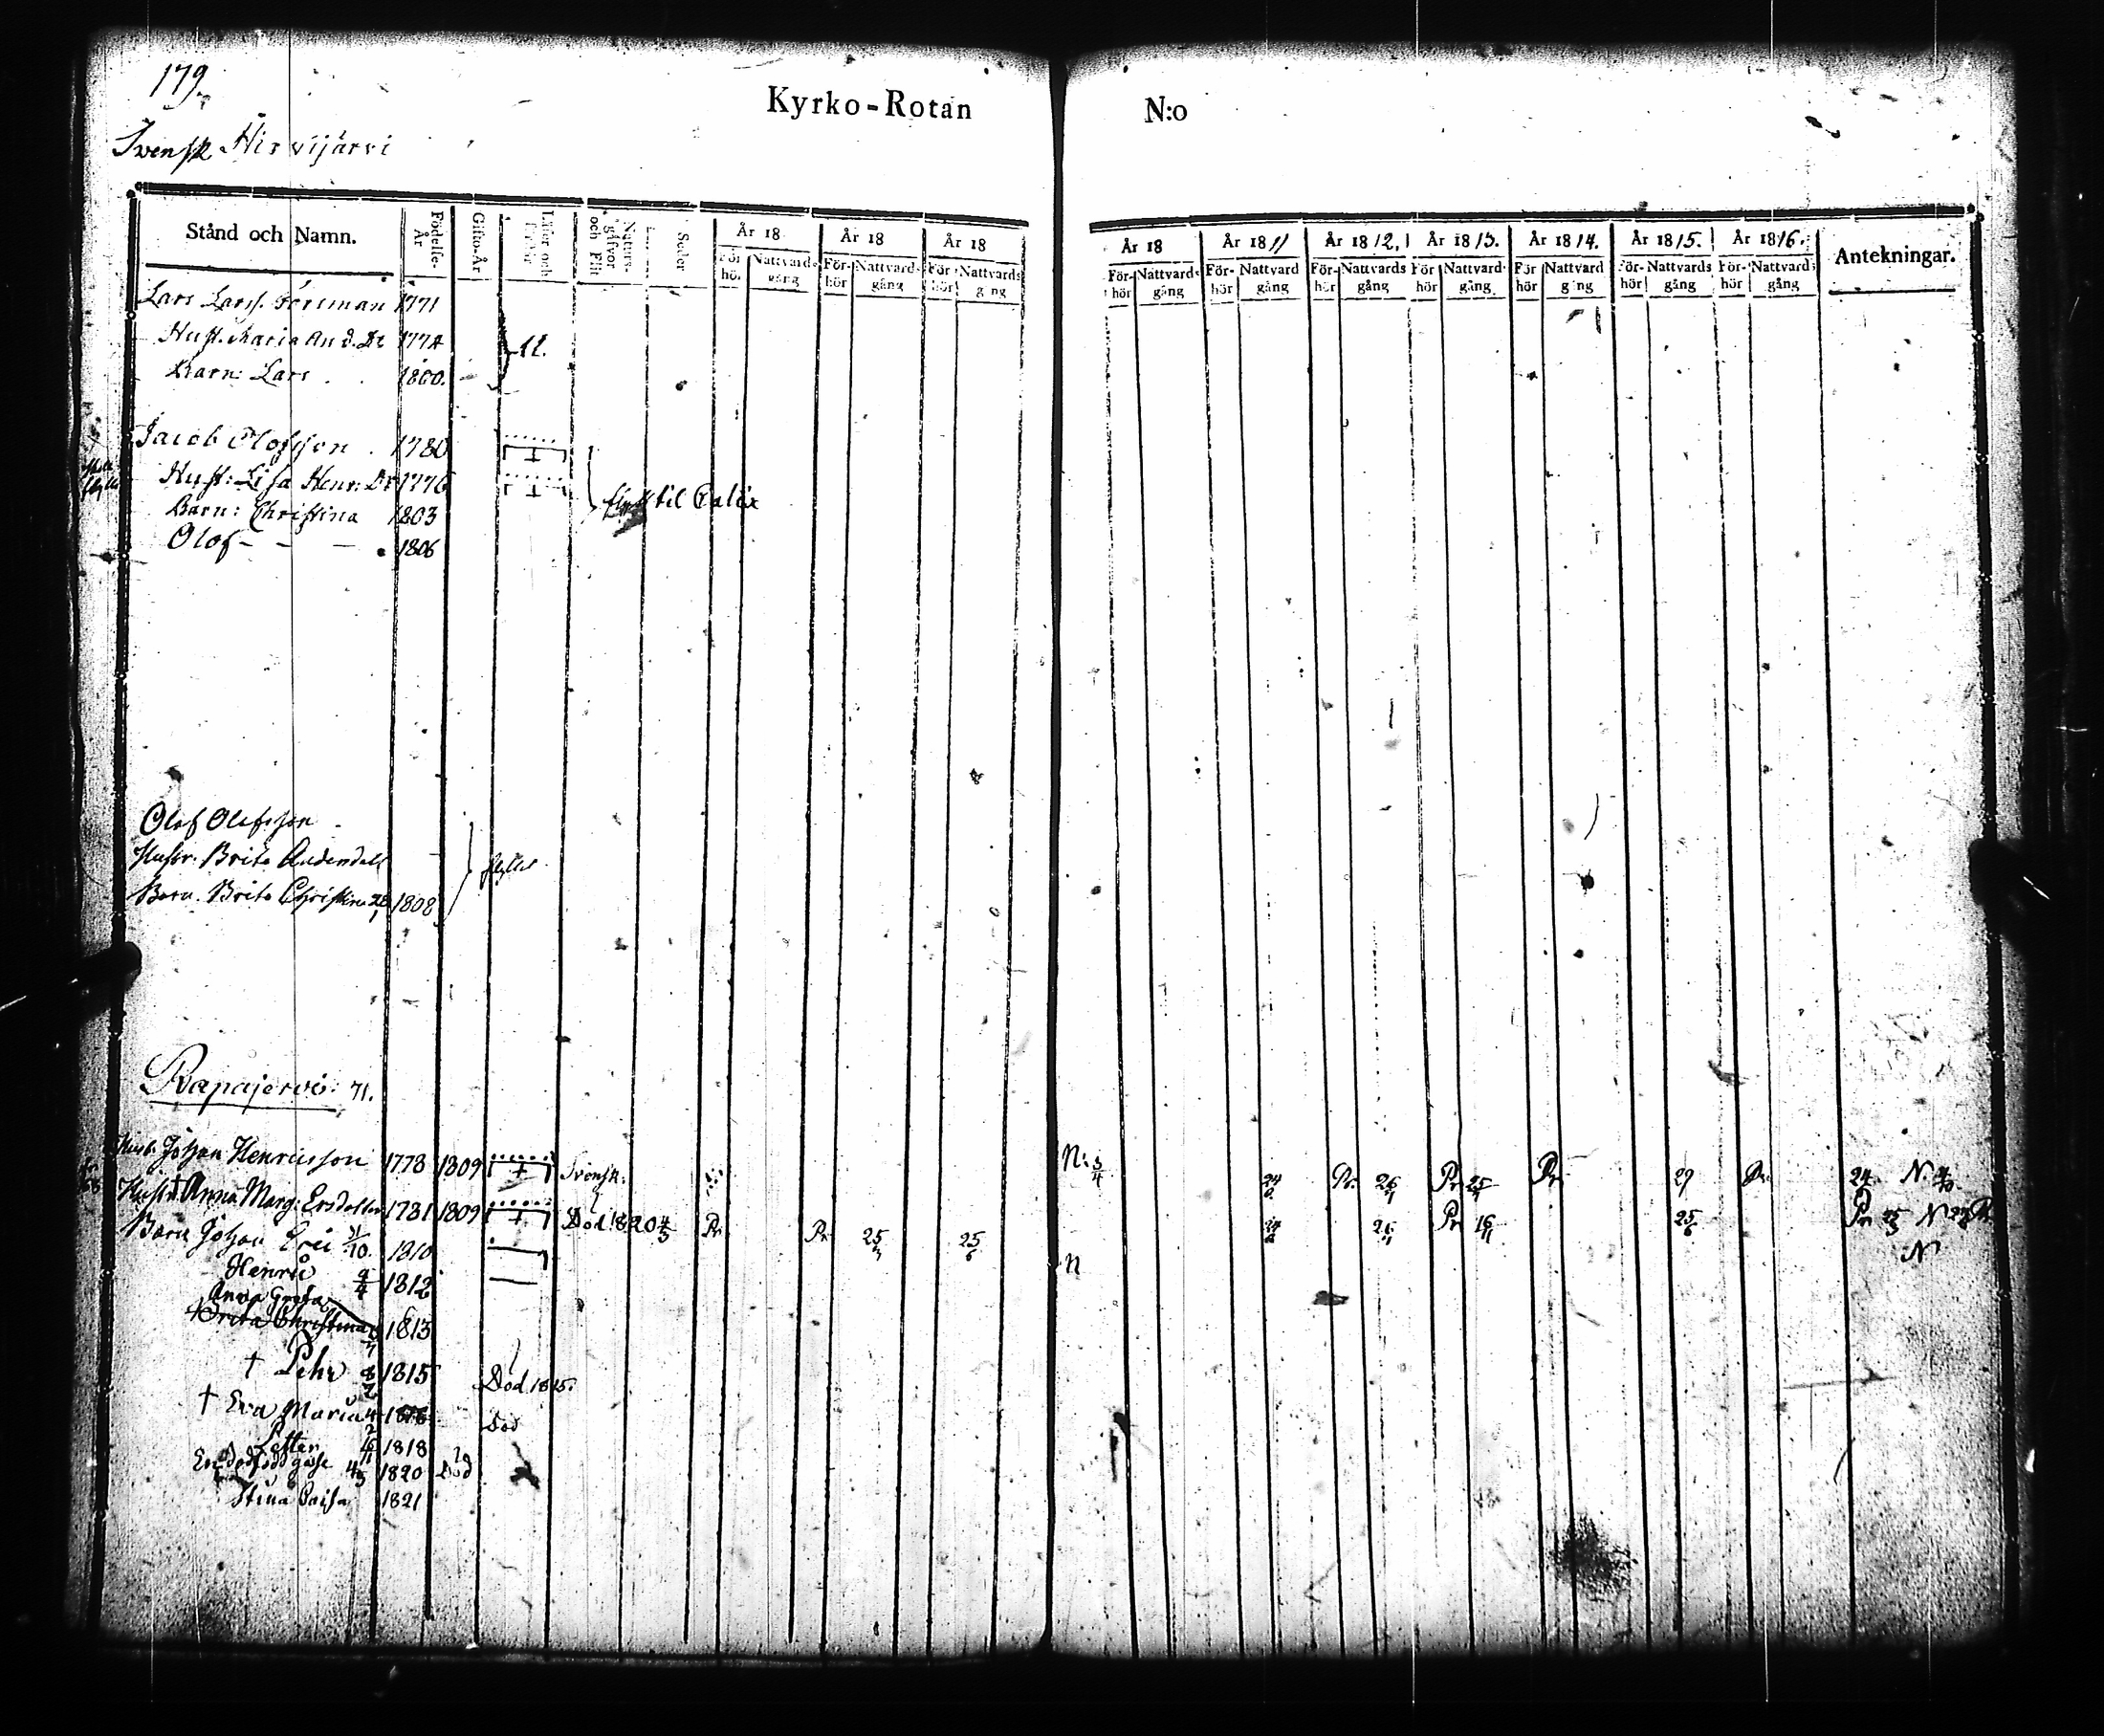 179.
Kyrko-Rotan N:o
Svensk Hirvijärvi
Stånd och Namn. Födelse-År Gifto-År Läser och Nattvardsgåfvor och Flit Seder År 18 År 18 År 18 År 18 År 1811 År 1812. År 1813. År 1814. År 1815. År 1816. Antekningar.
För-hör Nattvards gång För-hör Nattvards gång För-hör Nattvards gång För-hör Nattvards gång För-hör Nattvard gång För-hör Nattvards gång För-hör Nattvards gång För-hör Nattvard gång För-hör Nattvards gång För-hör Nattvards gång
Lars Larss. Forsman 1771
Hust. Maria And. Dr 1774
Barn: Lars 1800.
Jacob Olofsson 1780
Hust: Lisa Henr. Dr 1776
flytt til Calix
Barn: Christina 1803
Olof - - - 1806
Olof Olofsson
Hustr: Brita Andersdott
flyttat
Barn. Brita Christina 28/1 1808
Rapajervi: 71.
Husb. Johan Henricsson 1778 1809 Svensk. N: 3/4 24 Pr. 26 Pr 25 Pr 27 Pr. 24 N.
Hustr. Anna Marg: Ersdotter 1781 1809 Död 1820 4/5 Pr Pr 25 25/6 Pr 16/11 25/6 Pr 25/3 N
Barn Johan Eric 31/10. 1810 N N
Henric 9/4 1812
Anna Greta
+ Brita Christina 1813
† Pehr 1815 Död 1815.
† Eva Maria 1816 Död
Petter 1818
En dödfödd gåsse 4/5 1820 Död
Stina Caisa 1821